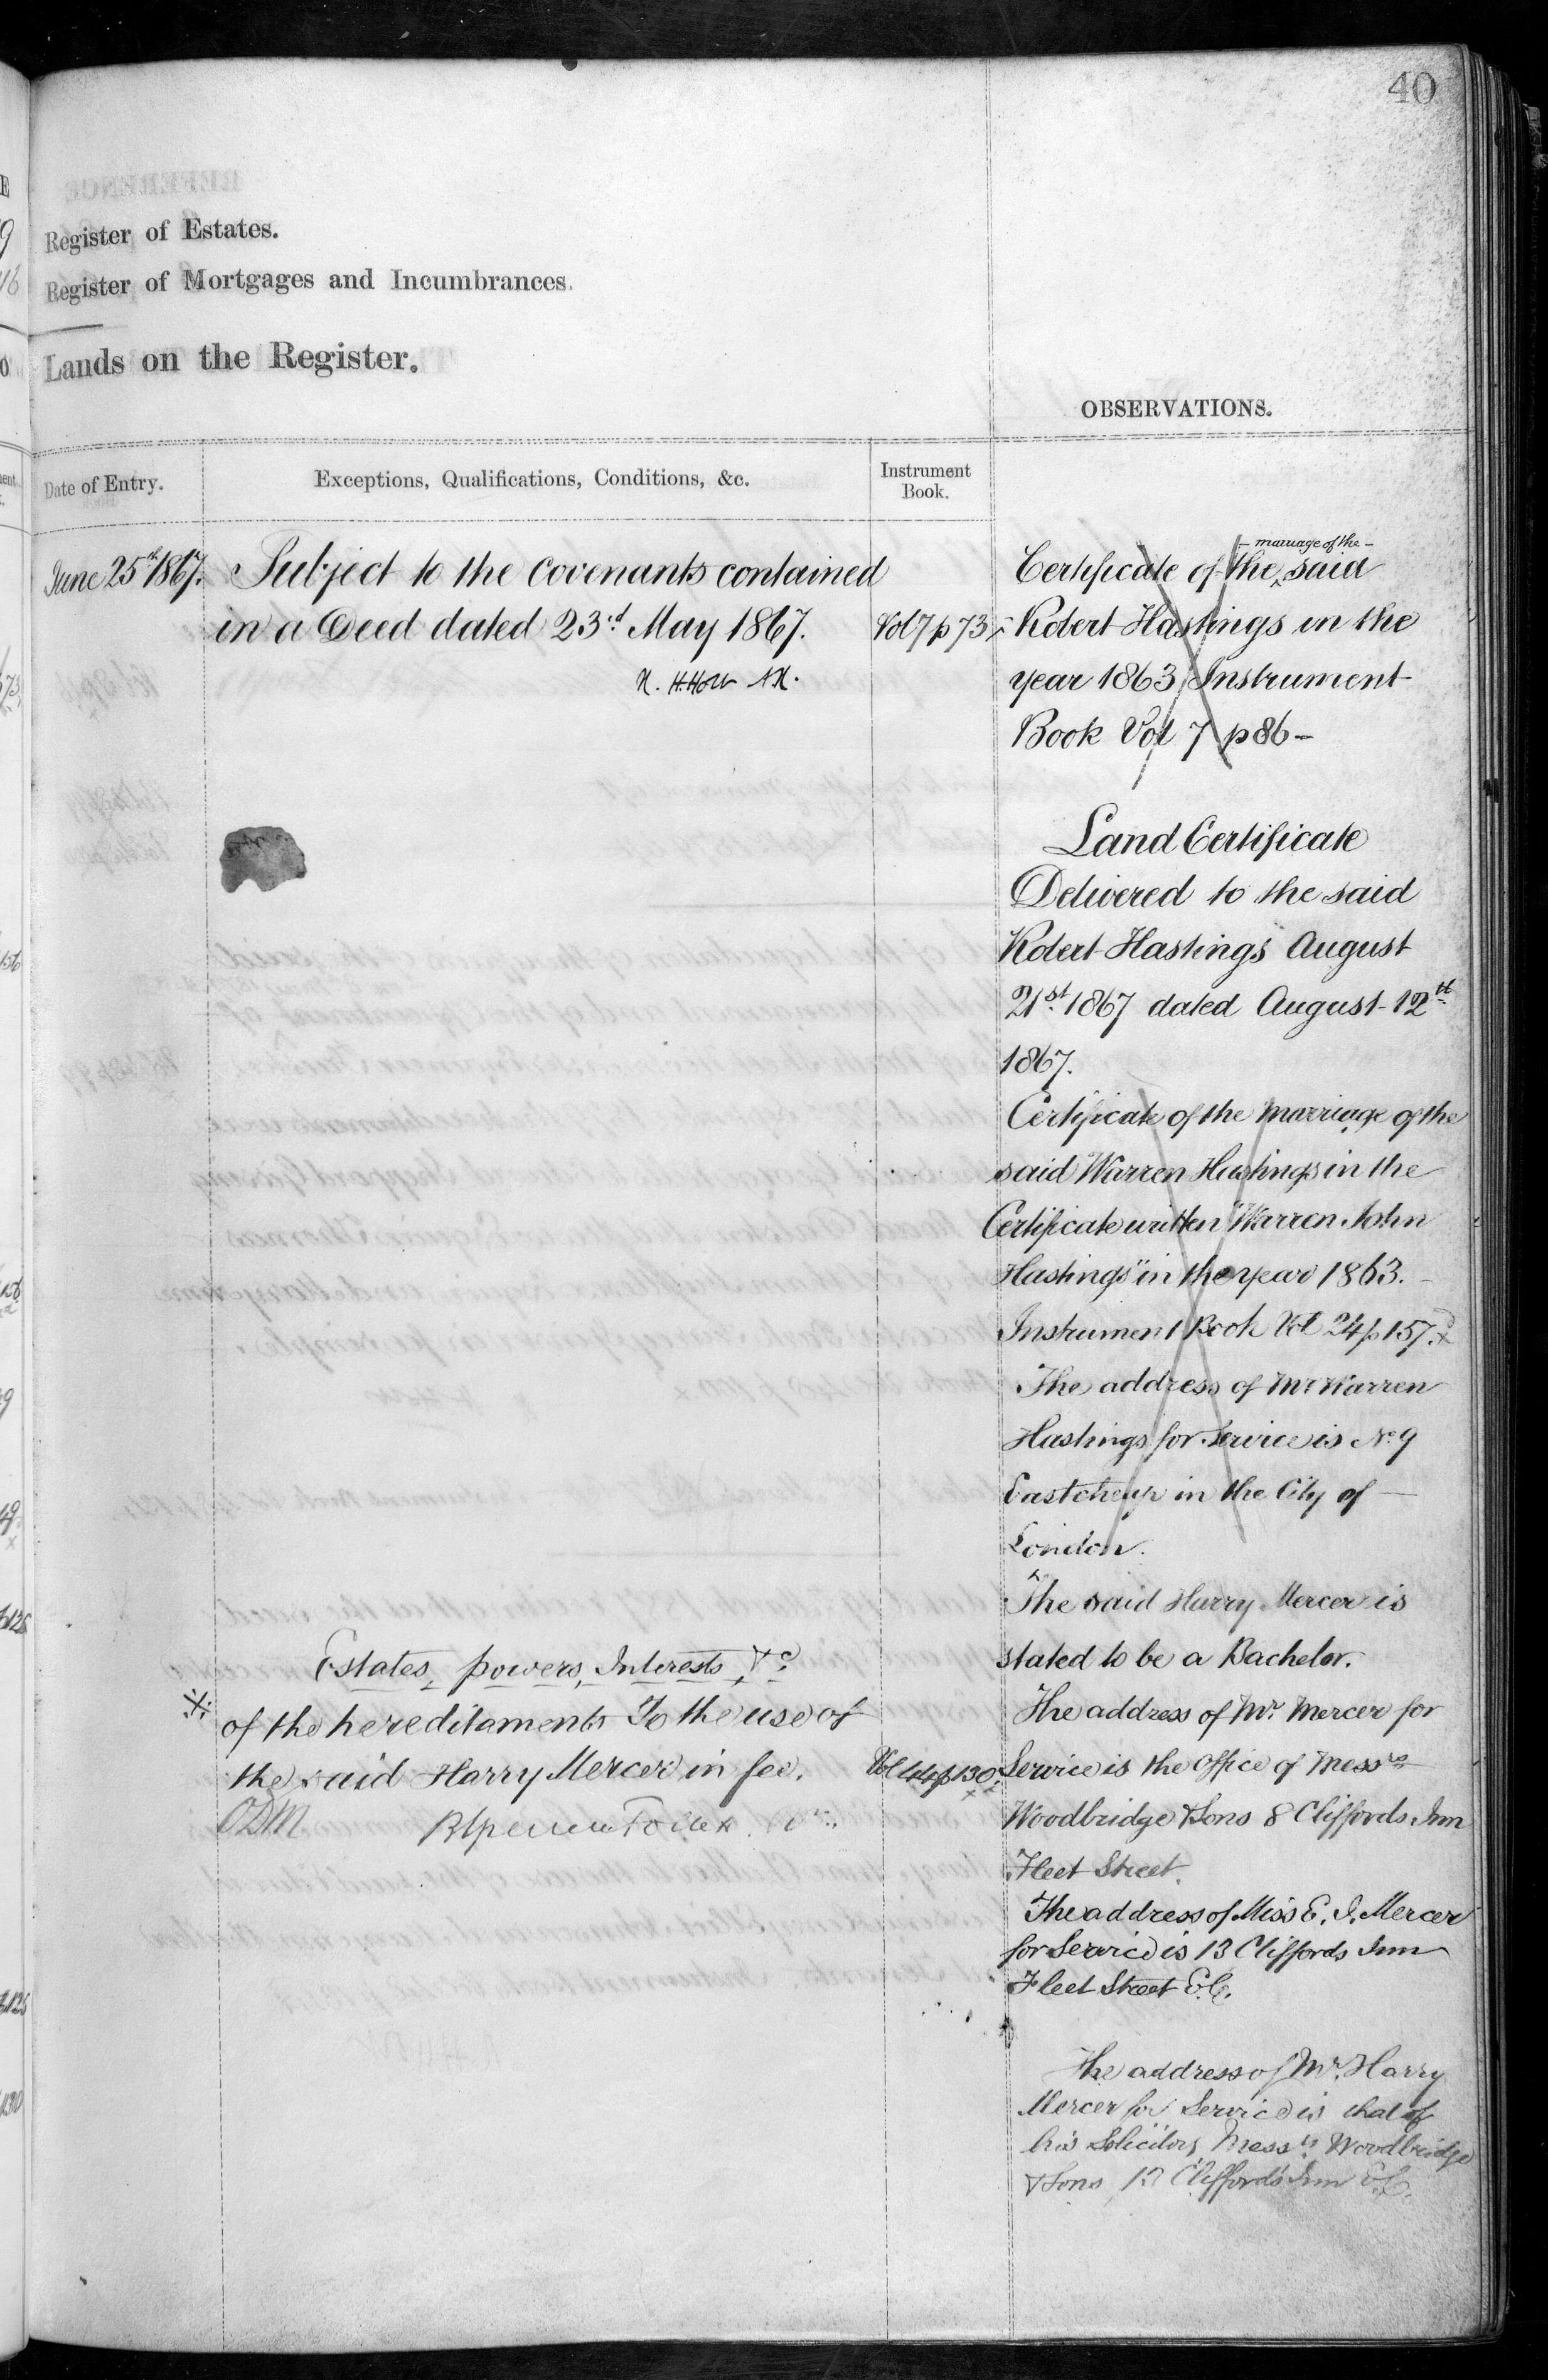 40
Register of Estates.
Register of Mortgages and Incumbrances.
Lands on the Register.
OBSERVATIONS.
Date of Entry.
Exceptions, Qualifications, Conditions, &c.
Instrument
Book.
June 25th 1867.
Subject to the Covenants contained
in a Deed dated 23rd May 1867.
Vol 7 p 73
Certificate of the said
- marriage of the -
Robert Hastings in the
year 1863 Instrument
Book Vol 7 p 86 -
Land Certificate
Delivered to the said
Robert Hastings August
21st 1867 dated August 12th
1867.
Certificate of the Marriage of the
said Warren Hastings in the
Certificate written "Warren John
Hastings" in the year 1863. -
Instrument Book Vol 24 p 157. x
The address of Mr Warren
Hastings for Service is No 9
Eastcheap in the City of —
London.
The said Harry Mercer is
stated to be a Bachelor.
Estates, powers, Interests, &c.
※ of the hereditaments To the use of
the said Harry Mercer in fee.
Vol 44 p 130.
x
ODM
The address of Mr. Mercer for
Service is the office of Messrs
Woodbridge & Sons 8 Cliffords Inn
Fleet Street.
The address of Miss E. I. Mercer
for Service is 13 Cliffords Inn
Fleet Street E.C.
The address of Mr. Harry
Mercer for Service is that of
his Solicitors Messrs Woodbridge
& Sons 13 Clifford's Inn E.C.